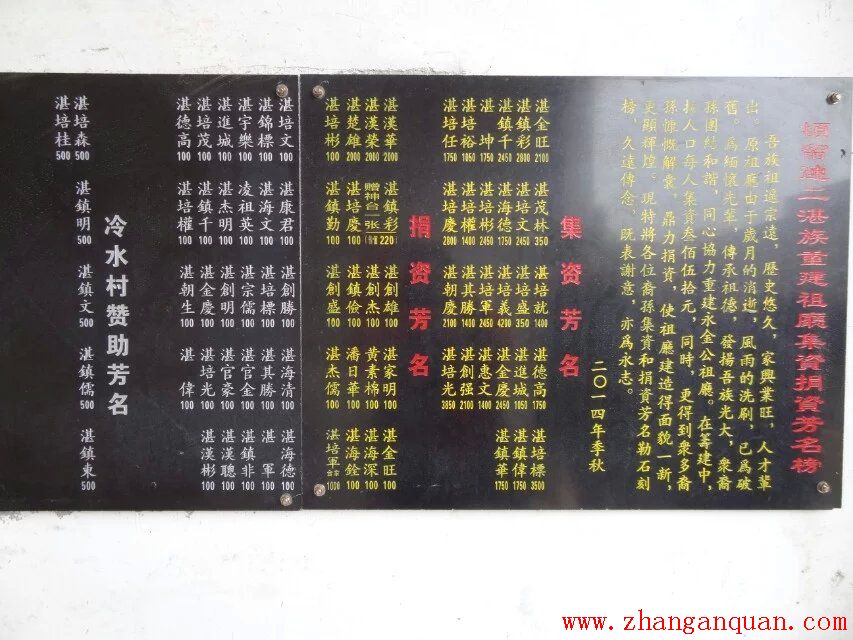 二湛族重建祖廳集資捐資芳名榜
吾族祖遏宗遠，歷史悠久，家興業旺，人才輩
出。原祖廳由于歲月的消逝，風雨的洗刷，已爲破
舊。爲緬懷先輩，傳承祖德，發揚吾族光大，衆裔
孫團結和諧，同心協力重建永金公祖廳。在籌建中，
按人口每人集資叁佰伍拾元，同時，更得到衆多裔
孫慷慨解囊，鼎力捐資，使祖廳建造得面貌一新，
更顯輝煌。現特將各位裔孫集資和捐資芳名勒石刻
榜，久遠傳念，既表謝意，亦爲永志。
二〇一四年季秋
集资芳名
湛金旺 2100 湛茂林 350 湛培就 1400 湛德高 1750 湛培標 3500
湛鎮彩 2800 湛培文 2450 湛培盛 350 湛進城 1050 湛鎮偉 1750
湛鎮千 2450 湛海德 1750 湛培義 4200 湛金慶 2450 湛鎮華 1750
湛坤 1750 湛培彬 2450 湛培軍 2450 湛惠文 1400
湛培裕 1050 湛培權 1400 湛其勝 2100 湛創强 2100
湛培任 1750 湛培慶 2800 湛朝慶 2100 湛培光 3850
捐资芳名
湛漢華 2000 湛鎮彩 220 湛創雄 100 湛家明 100 湛金旺 100
湛漢榮 2000 赠神台一张 湛創杰 100 黄素棉 100 湛海深 100
湛楚雄 2000 湛培慶 100 湛鎮儉 100 潘日華 100 湛海銓 100
湛培彬 100 湛鎮勤 100 湛創盛 100 湛杰儒 100 湛培軍 1000
湛培文 100 湛康君 100 湛創勝 100 湛海清 100 湛海德 100
湛錦標 100 湛海文 100 湛培標 100 湛其勝 100 湛軍 100
湛宇樂 100 凌祖英 100 湛宗儒 100 湛官金 100 湛鎮非 100
湛進城 100 湛杰明 100 湛創明 100 湛官豪 100 湛漢聰 100
湛培茂 100 湛鎮千 100 湛金慶 100 湛培光 100 湛漢彬 100
湛德高 100 湛培權 100 湛朝生 100 湛偉 100
冷水村赞助芳名
湛培森 500 湛鎮明 500 湛鎮文 500 湛鎮儒 500 湛鎮東 500
湛培桂 500
www.zhanganquan.com